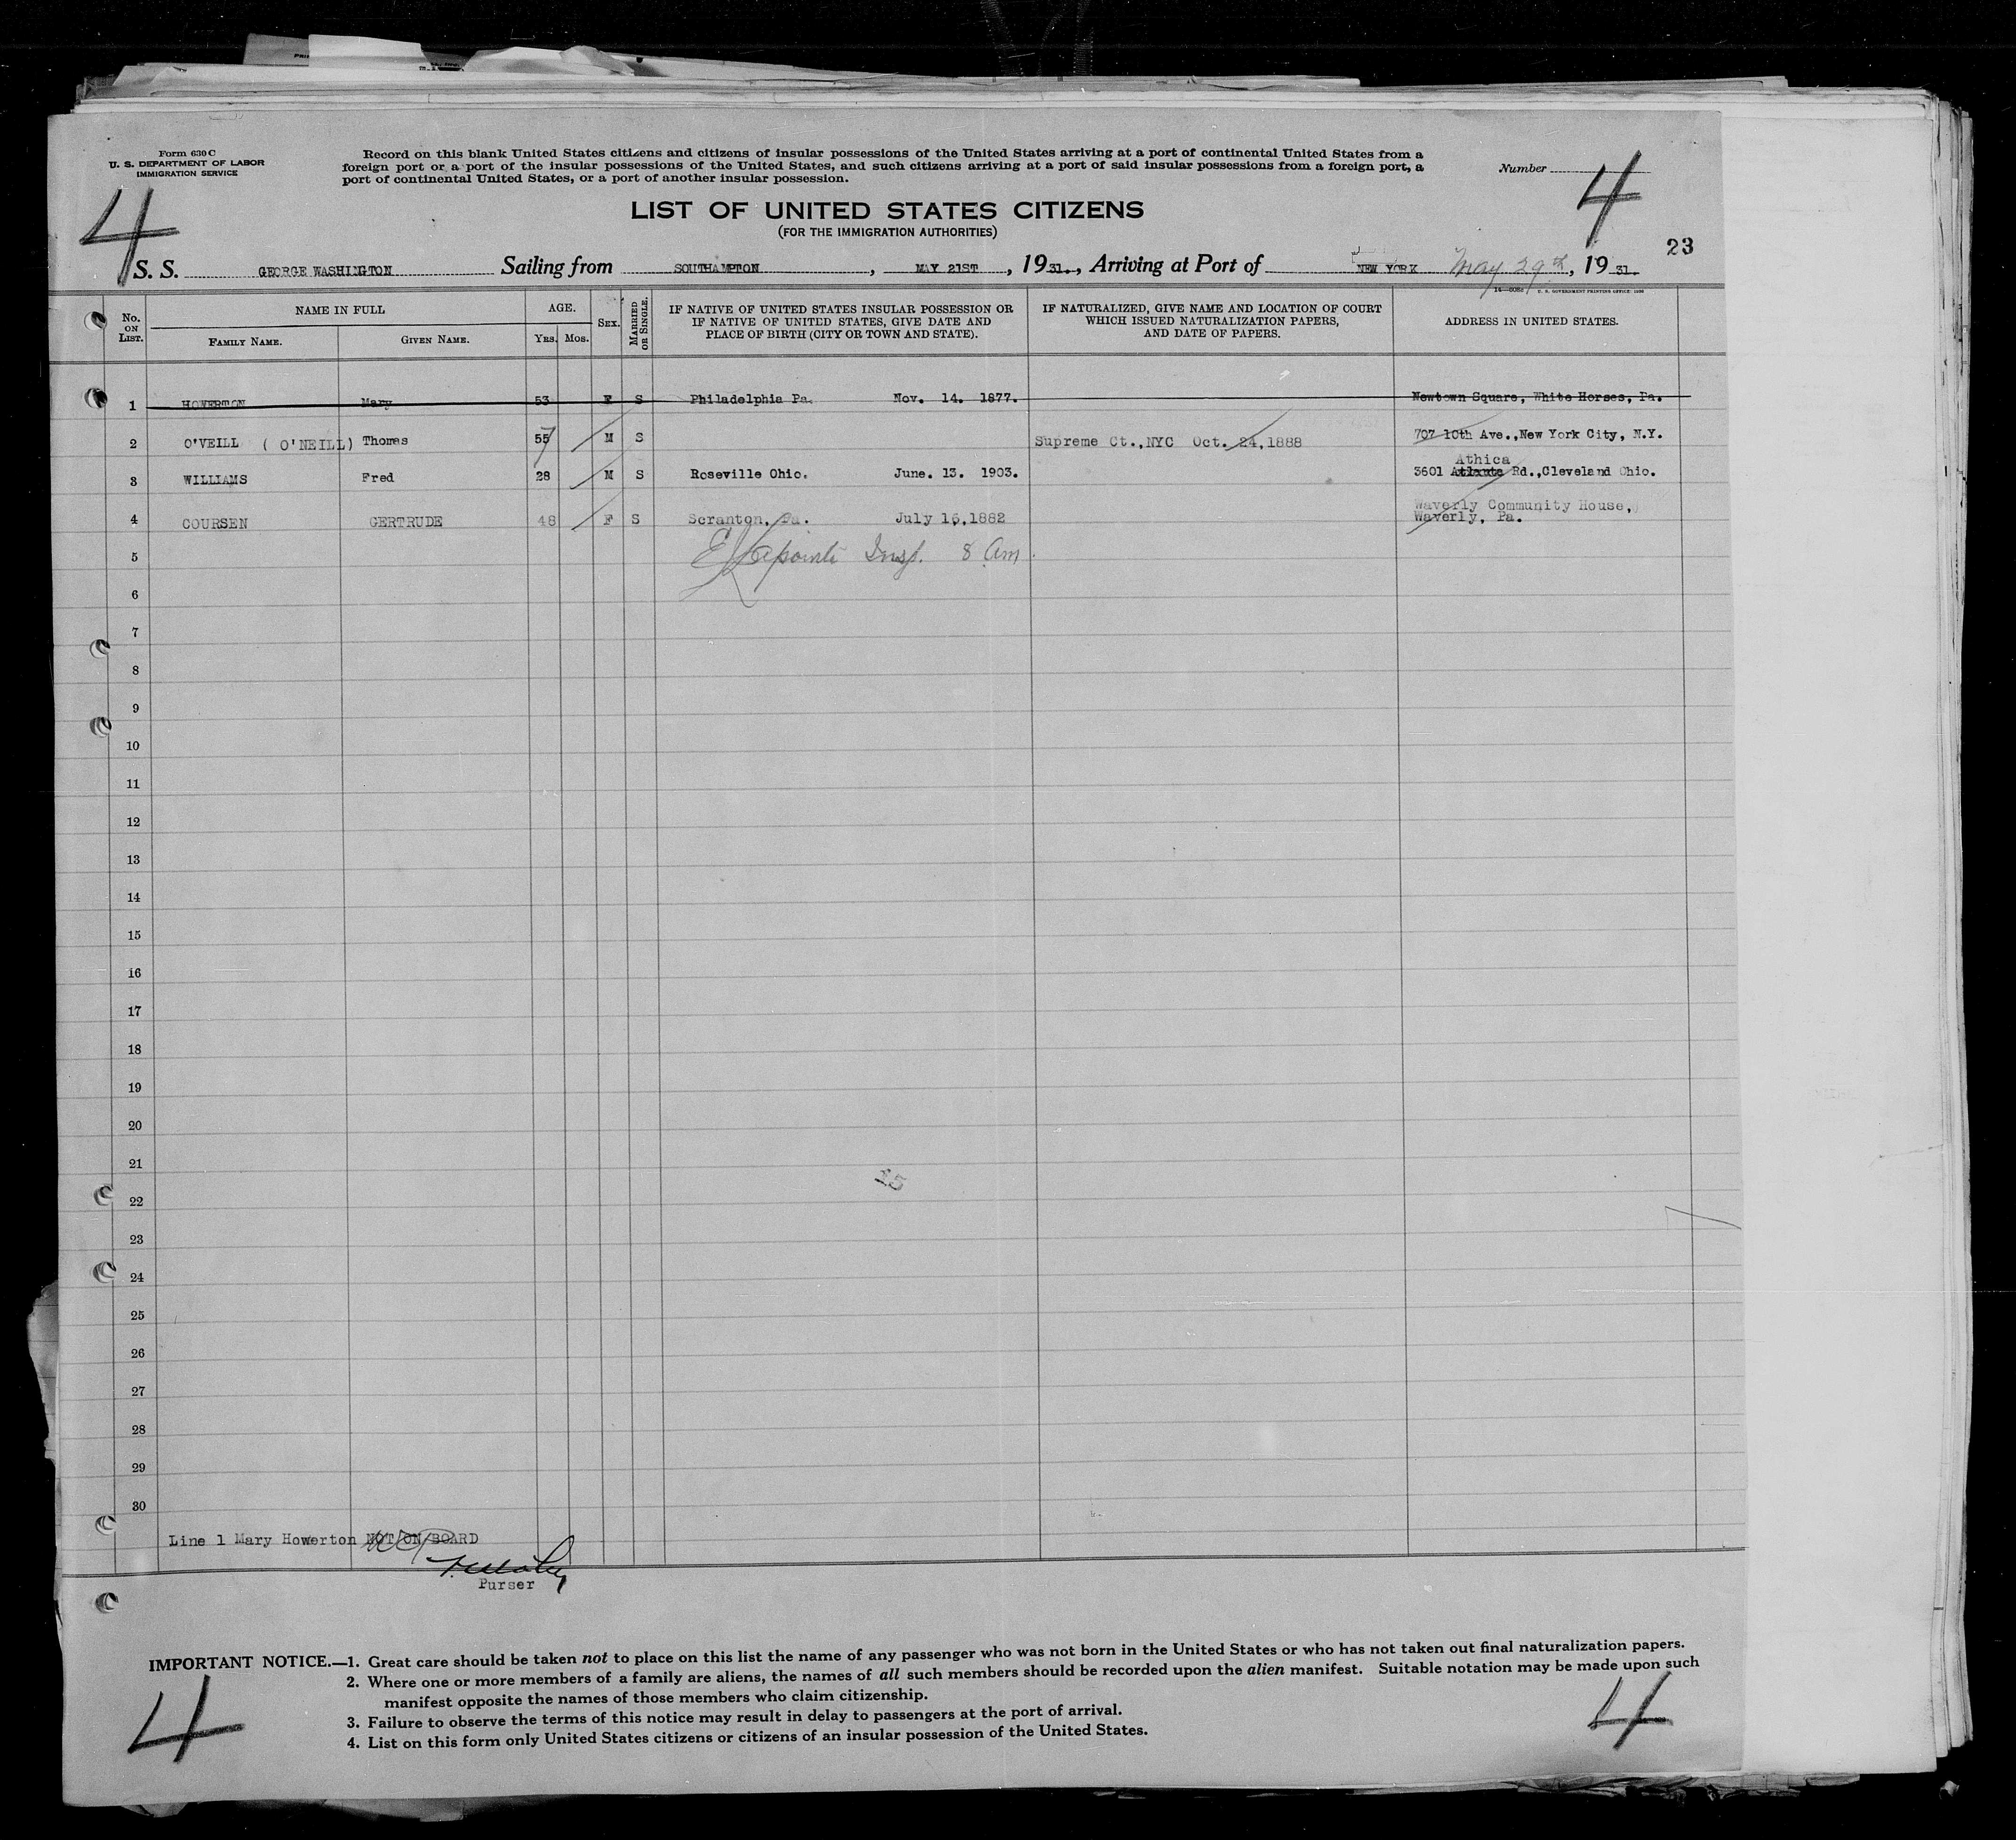 Form 630 C
U. S. DEPARTMENT OF LABOR
IMMIGRATION SERVICE
Record on this blank United States citizens and citizens of insular possessions of the United States arriving at a port of continental United States from a
foreign port or a port of the insular possessions of the United States, and such citizens arriving at a port of said insular possessions from a foreign port, a
port of continental United States, or a port of another insular possession.
Number
4
4
LIST OF UNITED STATES CITIZENS
(FOR THE IMMIGRATION AUTHORITIES)
23
S. S. GEORGE WASHINGTON Sailing from SOUTHAMPTON, MAY 21ST, 1931., Arriving at Port of NEW YORK May 29th, 1931.
U. S. GOVERNMENT PRINTING OFFICE
No. ON LIST. NAME IN FULL AGE. SEX. MARRIED OR SINGLE. IF NATIVE OF UNITED STATES INSULAR POSSESSION OR IF NATIVE OF UNITED STATES, GIVE DATE AND PLACE OF BIRTH (CITY OR TOWN AND STATE). IF NATURALIZED, GIVE NAME AND LOCATION OF COURT WHICH ISSUED NATURALIZATION PAPERS, AND DATE OF PAPERS. ADDRESS IN UNITED STATES.
FAMILY NAME. GIVEN NAME. YRS. MOS.
1 HOWERTON Mary 53 F S Philadelphia Pa. Nov. 14. 1877. Newtown Square, White Horses, Pa.
2 O'VEILL ( O'NEILL) Thomas 55 7 M S Supreme Ct.,NYC Oct. 24,1888 707 10th Ave.,New York City, N.Y.
Athica
3 WILLIAMS Fred 28 M S Roseville Ohio. June. 13. 1903. 3601 Atlanta Rd.,Cleveland Ohio.
Waverly Community House,
4 COURSEN GERTRUDE 48 F S Scranton, Pa. July 16,1882 Waverly, Pa.
5 Lapointe Insp. 8 am.
6
7
8
9
10
11
12
13
14
15
16
17
18
19
20
21
22
23
24
25
26
27
28
29
30
Line 1 Mary Howerton NOT ON BOARD
Purser
IMPORTANT NOTICE.—1. Great care should be taken not to place on this list the name of any passenger who was not born in the United States or who has not taken out final naturalization papers.
2. Where one or more members of a family are aliens, the names of all such members should be recorded upon the alien manifest. Suitable notation may be made upon such
manifest opposite the names of those members who claim citizenship.
3. Failure to observe the terms of this notice may result in delay to passengers at the port of arrival.
4. List on this form only United States citizens or citizens of an insular possession of the United States.
4
4